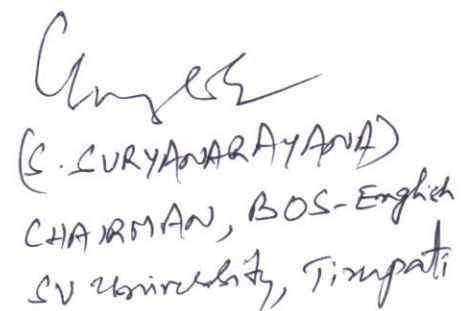 (S. SURYANARAYANA)
CHAIRMAN, BOS-English
SV University, Tirupati